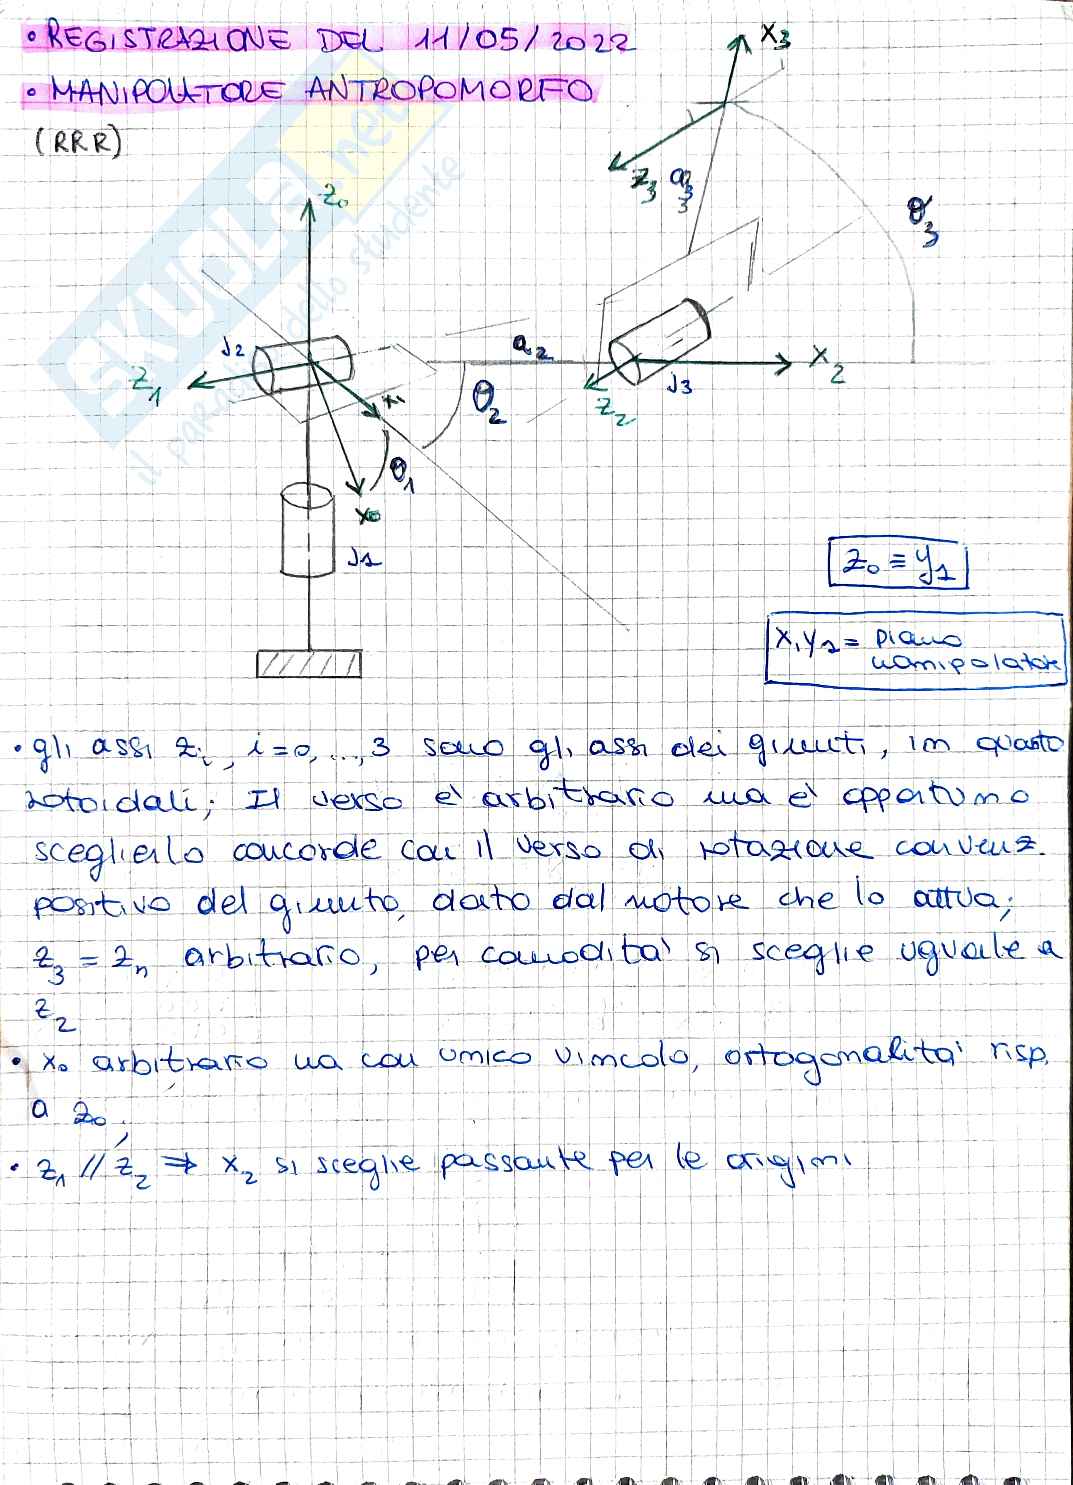 • REGISTRAZIONE DEL 11/05/2022
• MANIPOLATORE ANTROPOMORFO
(RRR)
x3
z3
a3
3
θ3
z0
J2
z1
x1
a2
θ2
x2
z2
J3
θ1
x0
J1
SKUOLA.net
il paradiso dello studente
z0 ≡ y1
x1y1 = piano
manipolatore
• gli assi zi, i=0,...,3 sono gli assi dei giunti, in quanto
rotoidali; Il verso è arbitrario ma è opportuno
sceglierlo concorde con il verso di rotazione convenz.
positivo del giunto, dato dal motore che lo attua;
z3 = zn arbitrario, per comodità si sceglie uguale a
z2
• x0 arbitrario ma con unico vincolo, ortogonalità risp.
a z0;
• z1 // z2 ⇒ x2 si sceglie passante per le origini